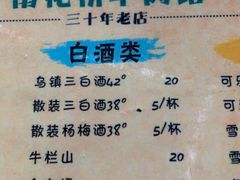 三十年老店
白酒类
乌镇三白酒42° 20
散装三白酒38° 5/杯
散装杨梅酒38° 5/杯
牛栏山 20
可
可
雪
雪